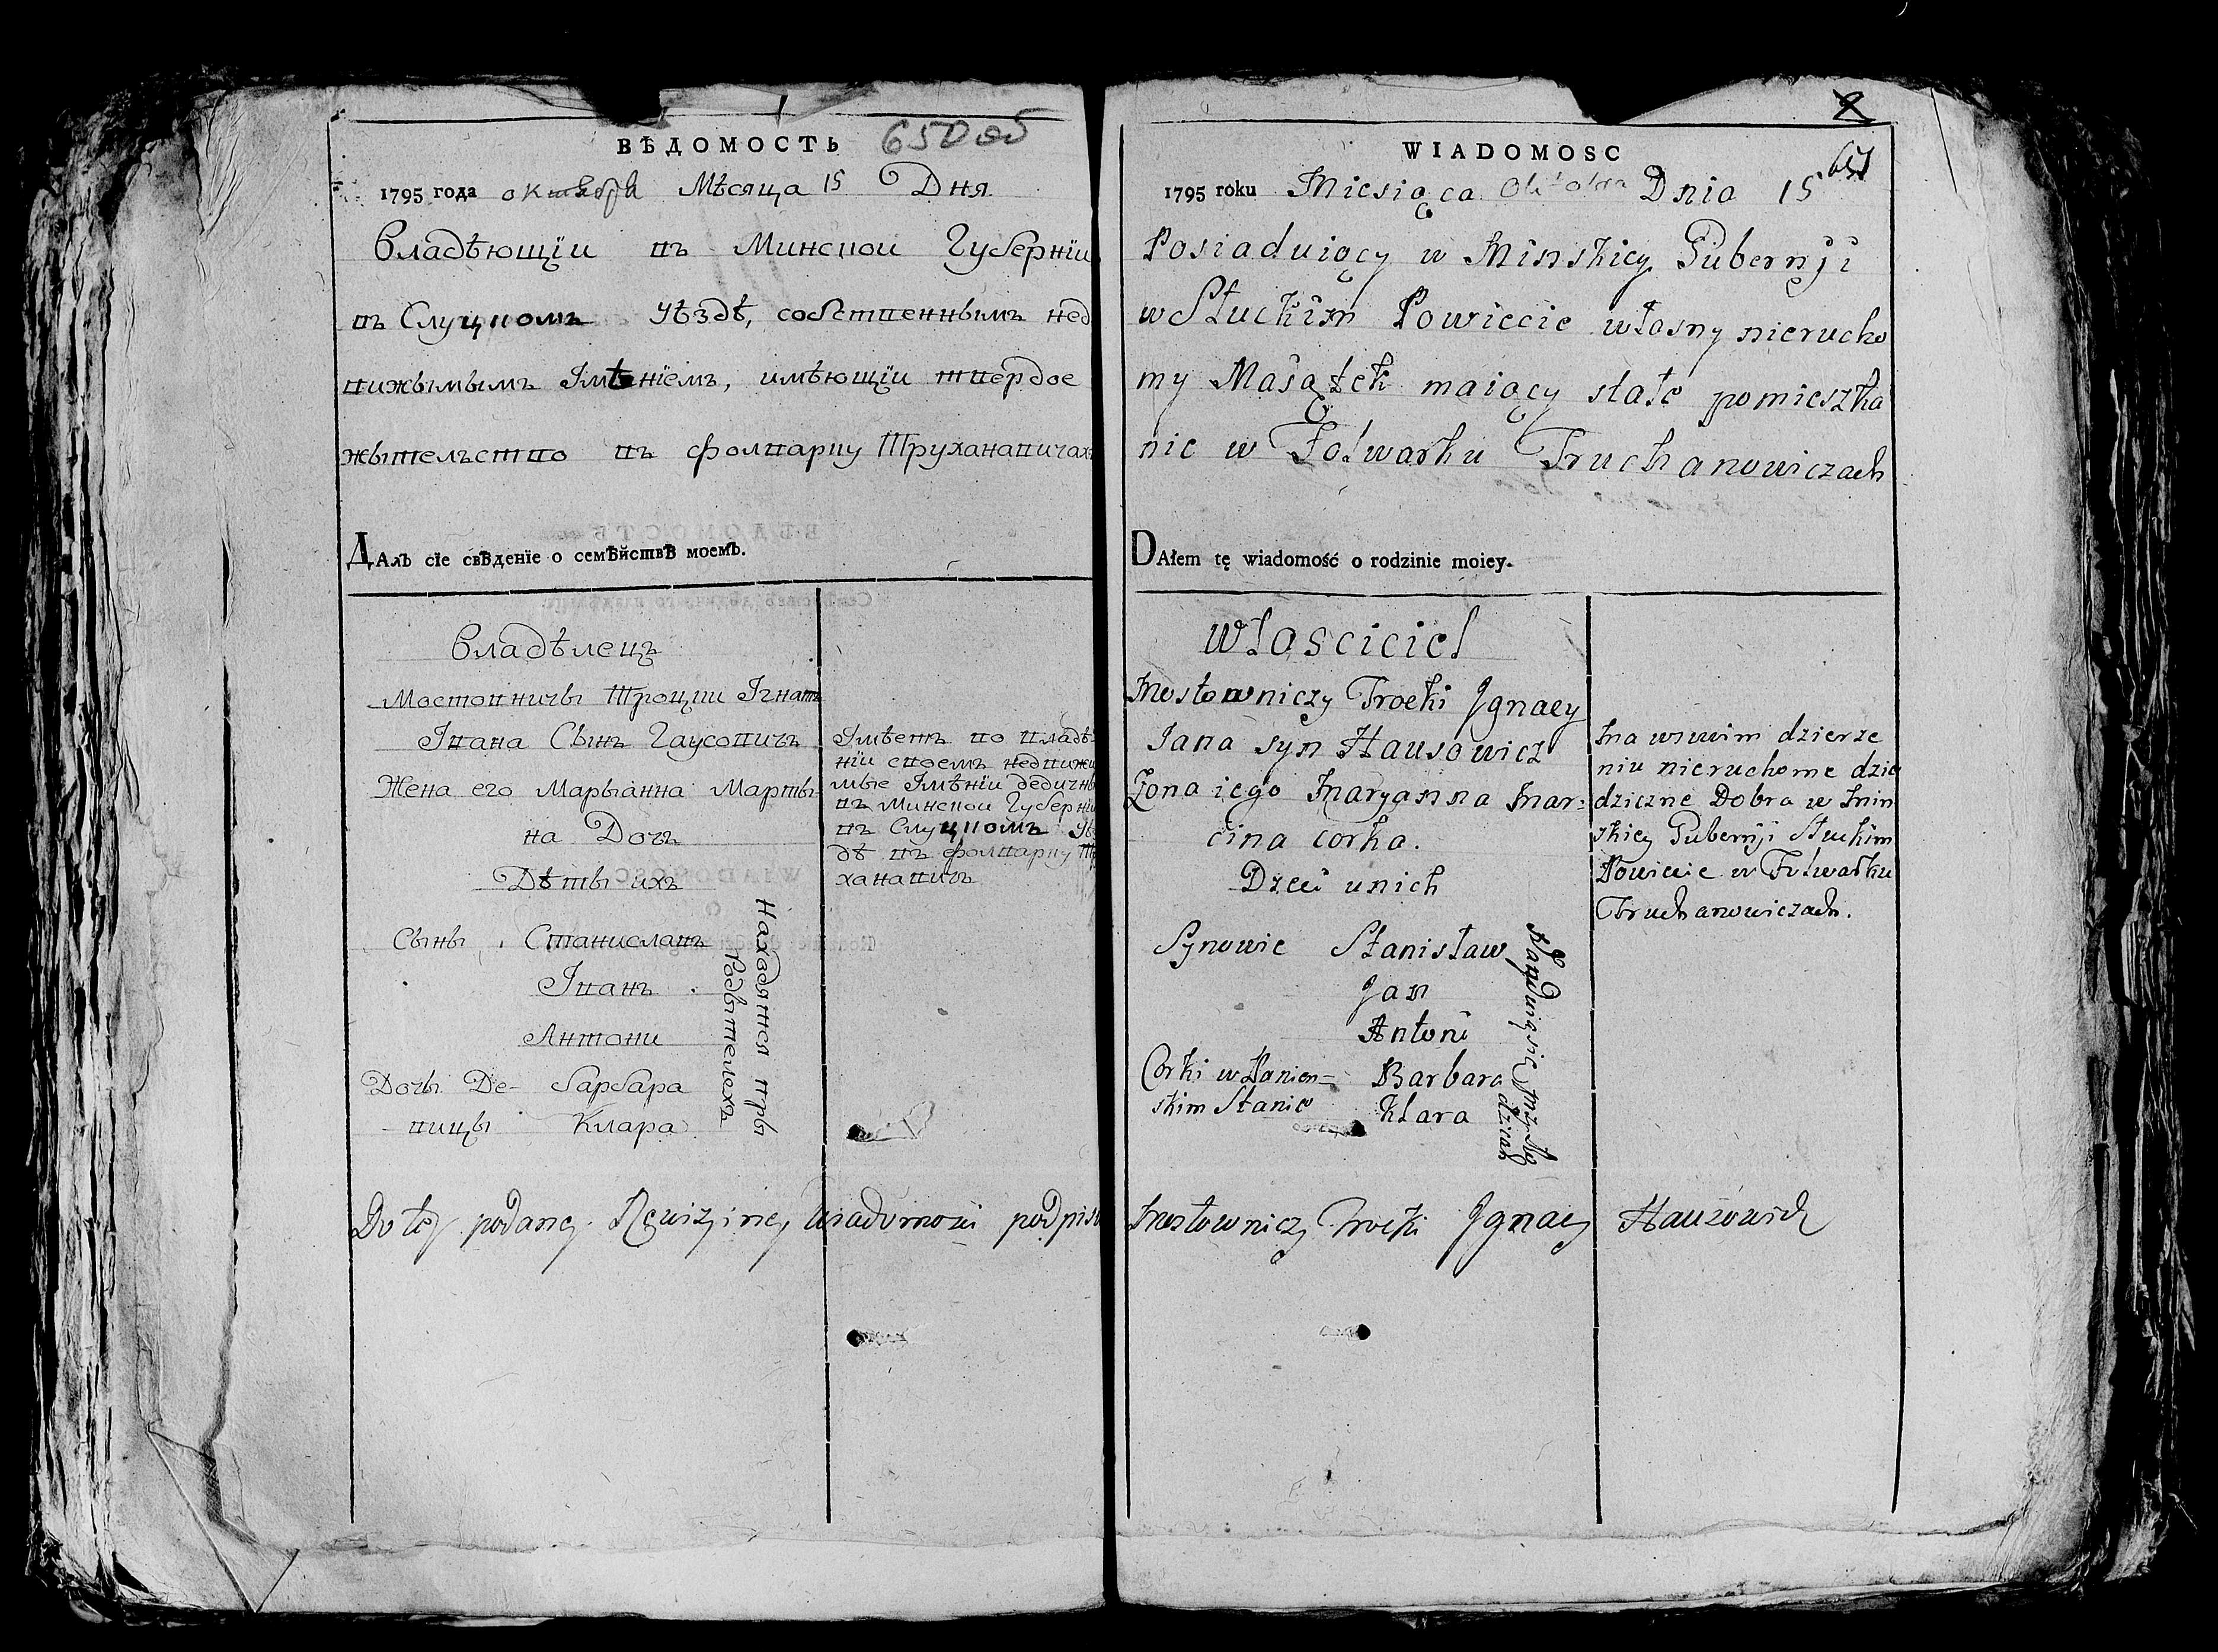 ВѢДОМОСТЬ 650 об
1795 года октября Мѣсяца 15 Дня
Владѣющїи въ Минской Губернїи
въ Слуцкомъ уѣздѣ, собственнымъ нед
вижымымъ Імѣнїемъ, имѣющїи твердое
жытельство въ фолварку Трухановичахъ
ДАлЪ сїе свѢденїе о семѢйствѢ моемЪ.
Владѣлецъ
Мостовничы Троцки Ігнатъ
Івана Сынъ Гаусовичъ
Жена его Марыанна Марты-
на Дочъ
Дѣты ихъ
Сыны Станиславъ
Іванъ
Антони
Дочы Де- Барбара
вицы Клара
Находятся пры
Родытелехъ
Імѣетъ во владѣ-
нїи своемъ недвижи
мые Імѣнїи дедичны
въ Минской Губернїи
въ Слуцкомъ уѣз
дѣ въ фолварку Тру
хановичъ
Do tey podaney Rewizyiney wiadomosci podpisu
WIADOMOSC
651
1795 roku Miesiąca Oktobra Dnia 15
Posiaduiący w Minskiey Gubernji
w Słuckim Powiecie własny nierucho
my Maiątek maiący stałe pomieszka
nie w Folwarku Truchanowiczach
DAłem tę wiadomość o rodzinie moiey.
własciciel
Mostowniczy Trocki Jgnacy
Jana syn Hausowicz
Zona iego Maryanna Mar-
cina corka.
Dzeci unich
Synowie Stanisław
Jan
Antoni
Corki w Panien= Barbara
skim Stanie Klara
Znayduią się przy Ro
dzicah
Ma wswim dzierze
niu nieruchome dzie
dziczne Dobra w Min
skiey Gubernji Słuckim
Powiecie w Folwarku
Truchanowiczach.
Mostowniczy Trocki Jgnacy Hausowicz